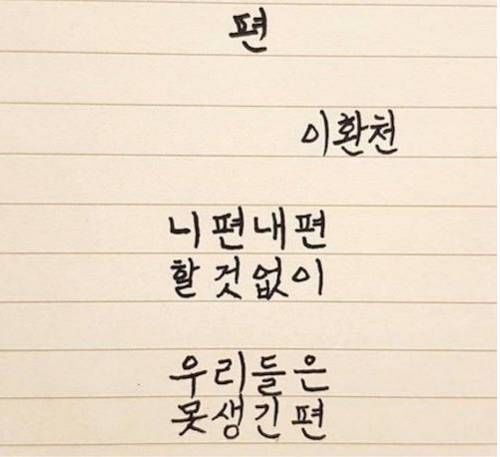 편
이환천
니편내편
할것없이
우리들은
못생긴편